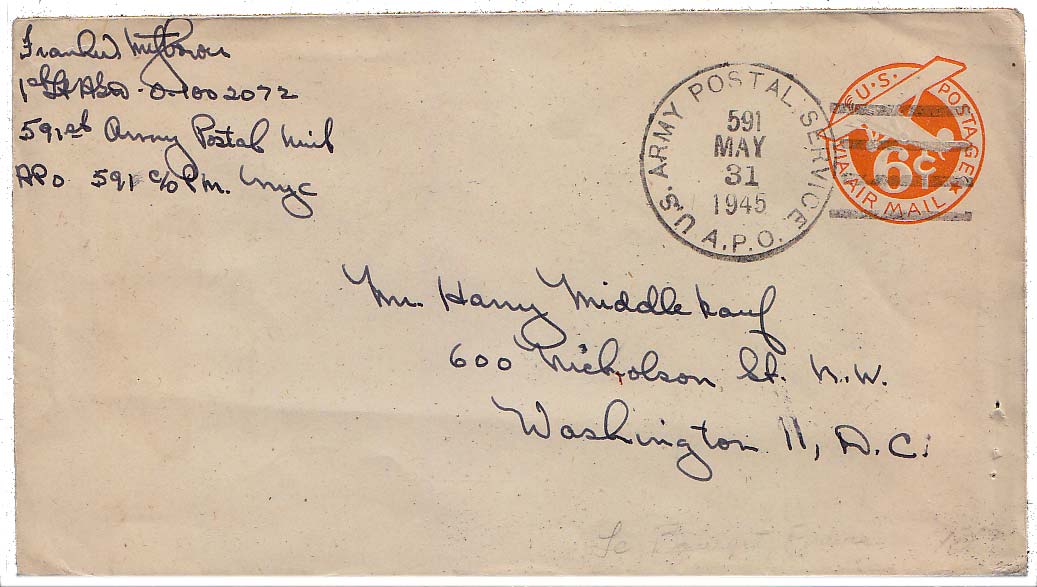 Frank W.
1st Lt AGD - O-1002072
591st Army Postal Unit
APO 591 c/o P.M. NYC
U.S. ARMY POSTAL SERVICE
591
MAY
31
1945
A.P.O.
U.S. POSTAGE
6¢
VIA AIR MAIL
Mr. Harry Middlekauf
600 Nicholson St. N.W.
Washington 11, D.C.
Le Bourget France